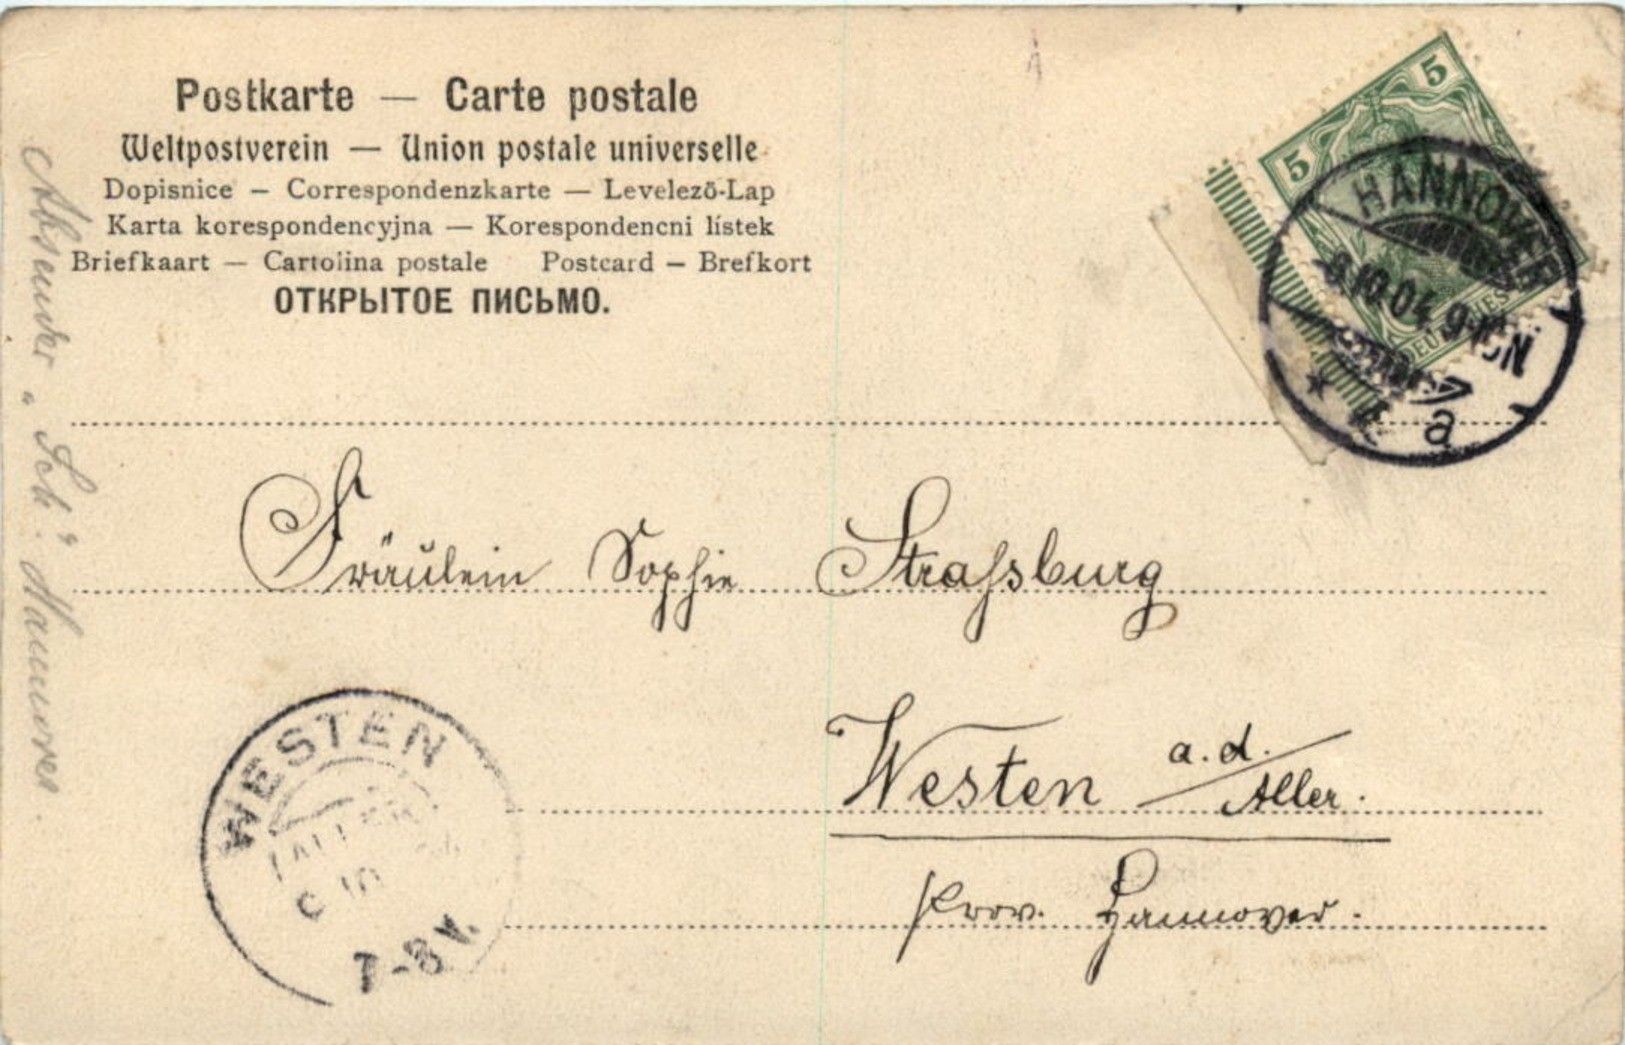 Postkarte — Carte postale
Weltpostverein — Union postale universelle
Dopisnice – Correspondenzkarte — Levelező-Lap
Karta korespondencyjna — Korespondencni lístek
Briefkaart — Cartolina postale Postcard – Brefkort
ОТКРЫТОЕ ПИСЬМО.
5
5
HANNOVER
10.04
9-10N
* a
Absender „Sch." Hannover.
Fräulein Sophie Straſsburg
Westen a.d./Aller.
Prov. Hannover.
WESTEN
(ALLER)
10
7-8V.